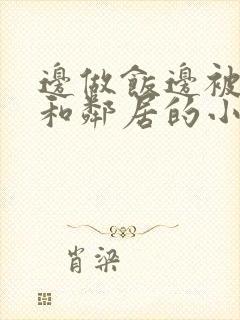 邊做飯邊被
和鄰居的小
肖梁